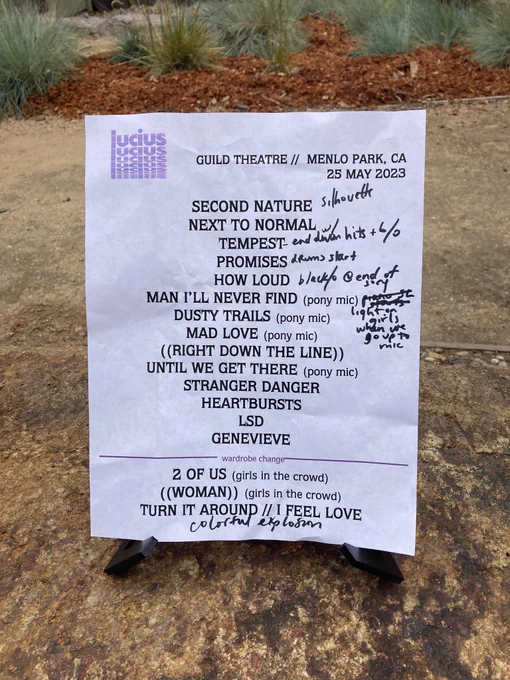 lucius
GUILD THEATRE // MENLO PARK, CA
25 MAY 2023
SECOND NATURE silhouette
NEXT TO NORMAL
TEMPEST- end down hits + b/o
PROMISES drums start
HOW LOUD black/o @ end of song
MAN I'LL NEVER FIND (pony mic)
DUSTY TRAILS (pony mic) light on
girls
when we
go up to
mic
MAD LOVE (pony mic)
((RIGHT DOWN THE LINE))
UNTIL WE GET THERE (pony mic)
STRANGER DANGER
HEARTBURSTS
LSD
GENEVIEVE
wardrobe change
2 OF US (girls in the crowd)
((WOMAN)) (girls in the crowd)
TURN IT AROUND // I FEEL LOVE
colorful explosion